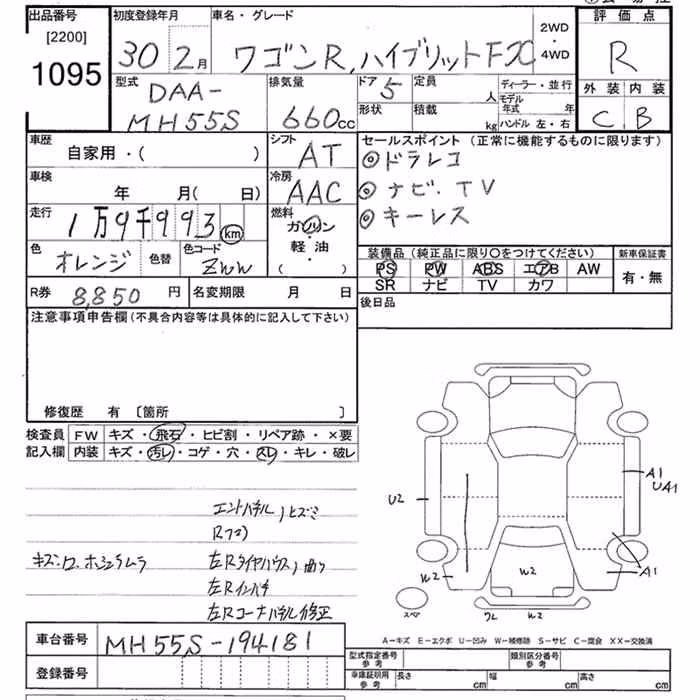 出品番号
[2200]
1095
初度登録年月
30 2月
車名・グレード
ワゴンR,ハイブリットFX
2WD
・
4WD
評価点
R
外装 内装
C B
型式
DAA-
MH55S
排気量
660cc
ドア 5
定員
人
形状
積載
kg
ディーラー・並行
モデル
年式 年
ハンドル 左・右
車歴
自家用・( )
シフト
AT
車検
年 月( 日)
冷房
AAC
走行
1万9千993 km
燃料
ガソリン
・
軽油
・
( )
色
オレンジ
色替
色コード
ZWW
R券 8,850 円
名変期限 月 日
セールスポイント(正常に機能するものに限ります)
◎ドラレコ
◎ナビ.TV
◎キーレス
装備品(純正品に限り○をつけてください)
PS PW ABS エアB AW
SR ナビ TV カワ
新車保証書
有・無
後日品
注意事項申告欄(不具合内容等は具体的に記入して下さい)
修復歴 有 [箇所 ]
検査員
記入欄
FW キズ・飛石・ヒビ割・リペア跡・×要
内装 キズ・汚レ・コゲ・穴・スレ・キレ・破レ
エンドパネル,ヒズミ
キズ.
左Rタイヤハウス,曲り
左Rインパネ
左Rコーナーパネル修正
U2
A1
UA1
A1
W2
W2
W2
スペア
A-キズ E-エクボ U-凹み W-補修跡 S-サビ C-腐食 XX-交換済
車台番号 MH55S-194181
登録番号
型式指定番号
参考
類別区分番号
参考
車庫証明用
参考
長さ cm
幅 cm
高さ cm